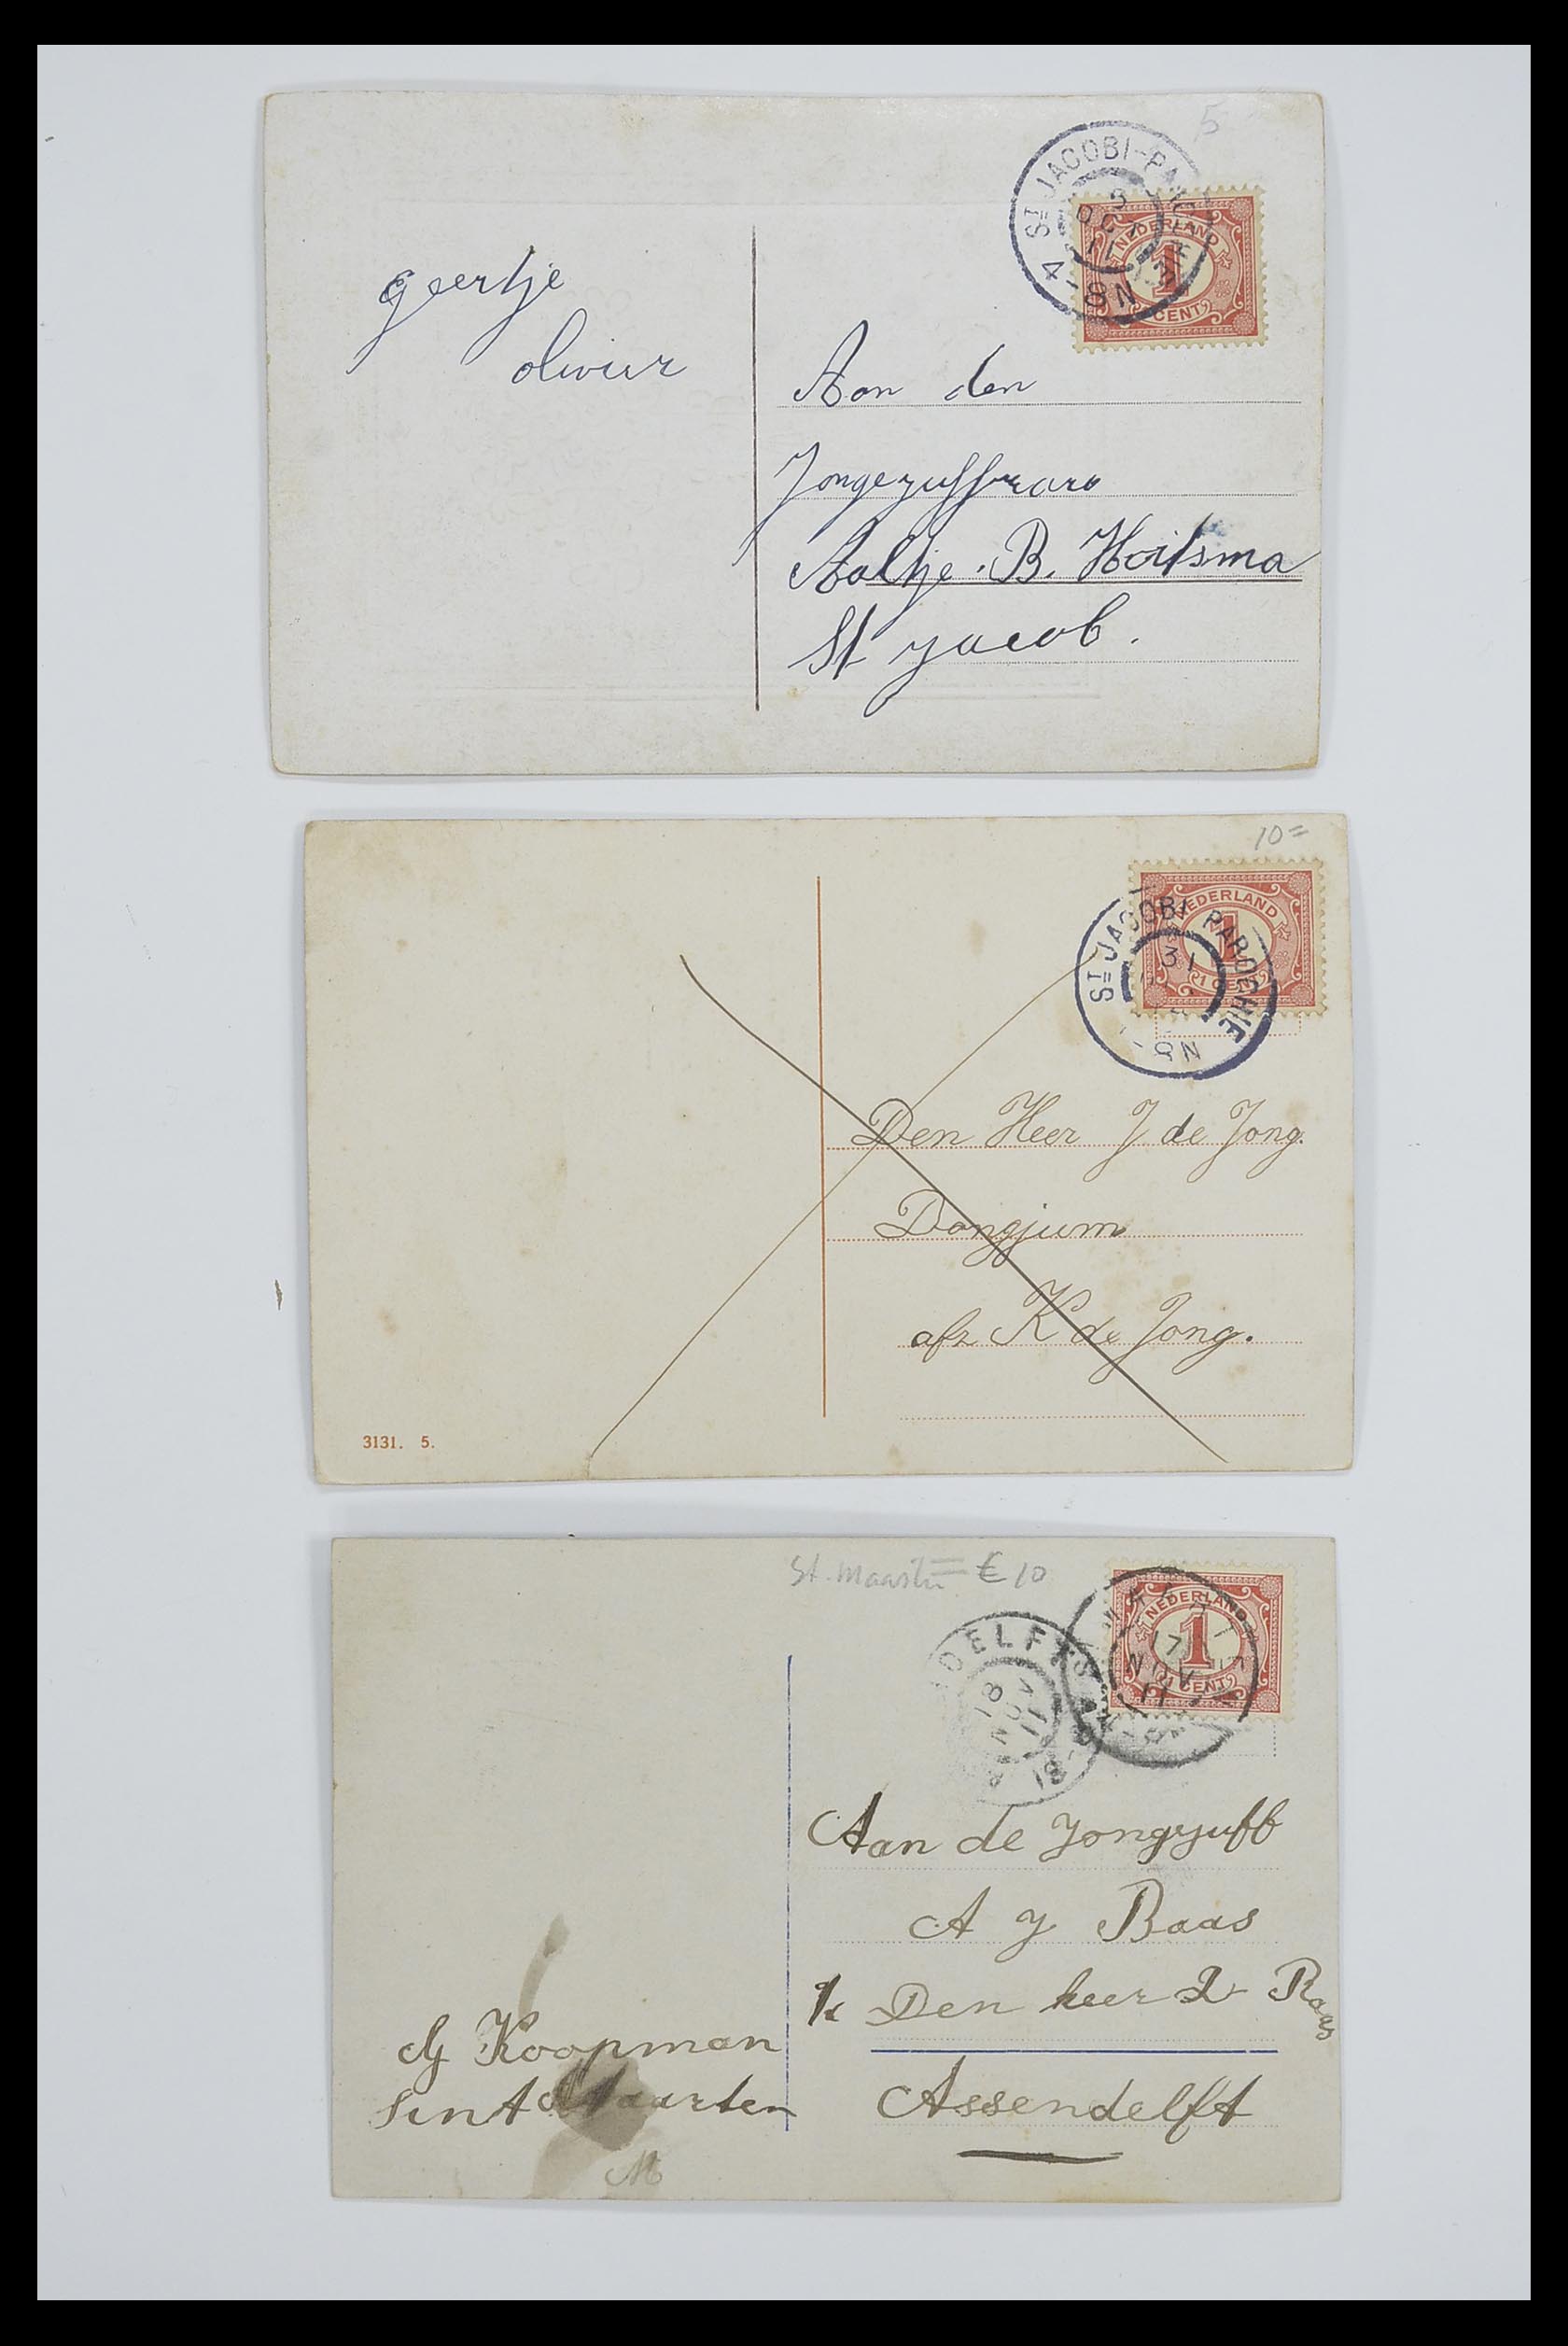 5
ST JACOBI-PAROCHIE
4-8N
NEDERLAND
1
CENT
geertje
olivier
Aan den
Jongejuffvrouw
Aaltje . B. Hoitsma
St Jacob .
10=
ST JACOBI PAROCHIE
31
8N
NEDERLAND
1
1 CENT
Den Heer J de Jong.
Dongjum
afz K de Jong.
3131. 5.
St. Maarten = € 10
DELFT
18 NOV 11
17 NOV 11
NEDERLAND
1
1 CENT
Aan de Jongjuff
A J Baas
Den heer
Assendelft
G Koopman
Sint Maarten
M